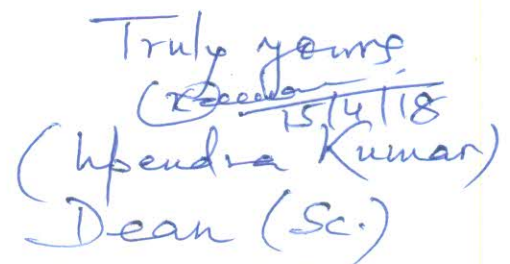 Truly yours
15/4/18
(Upendra Kumar)
Dean (Sc.)